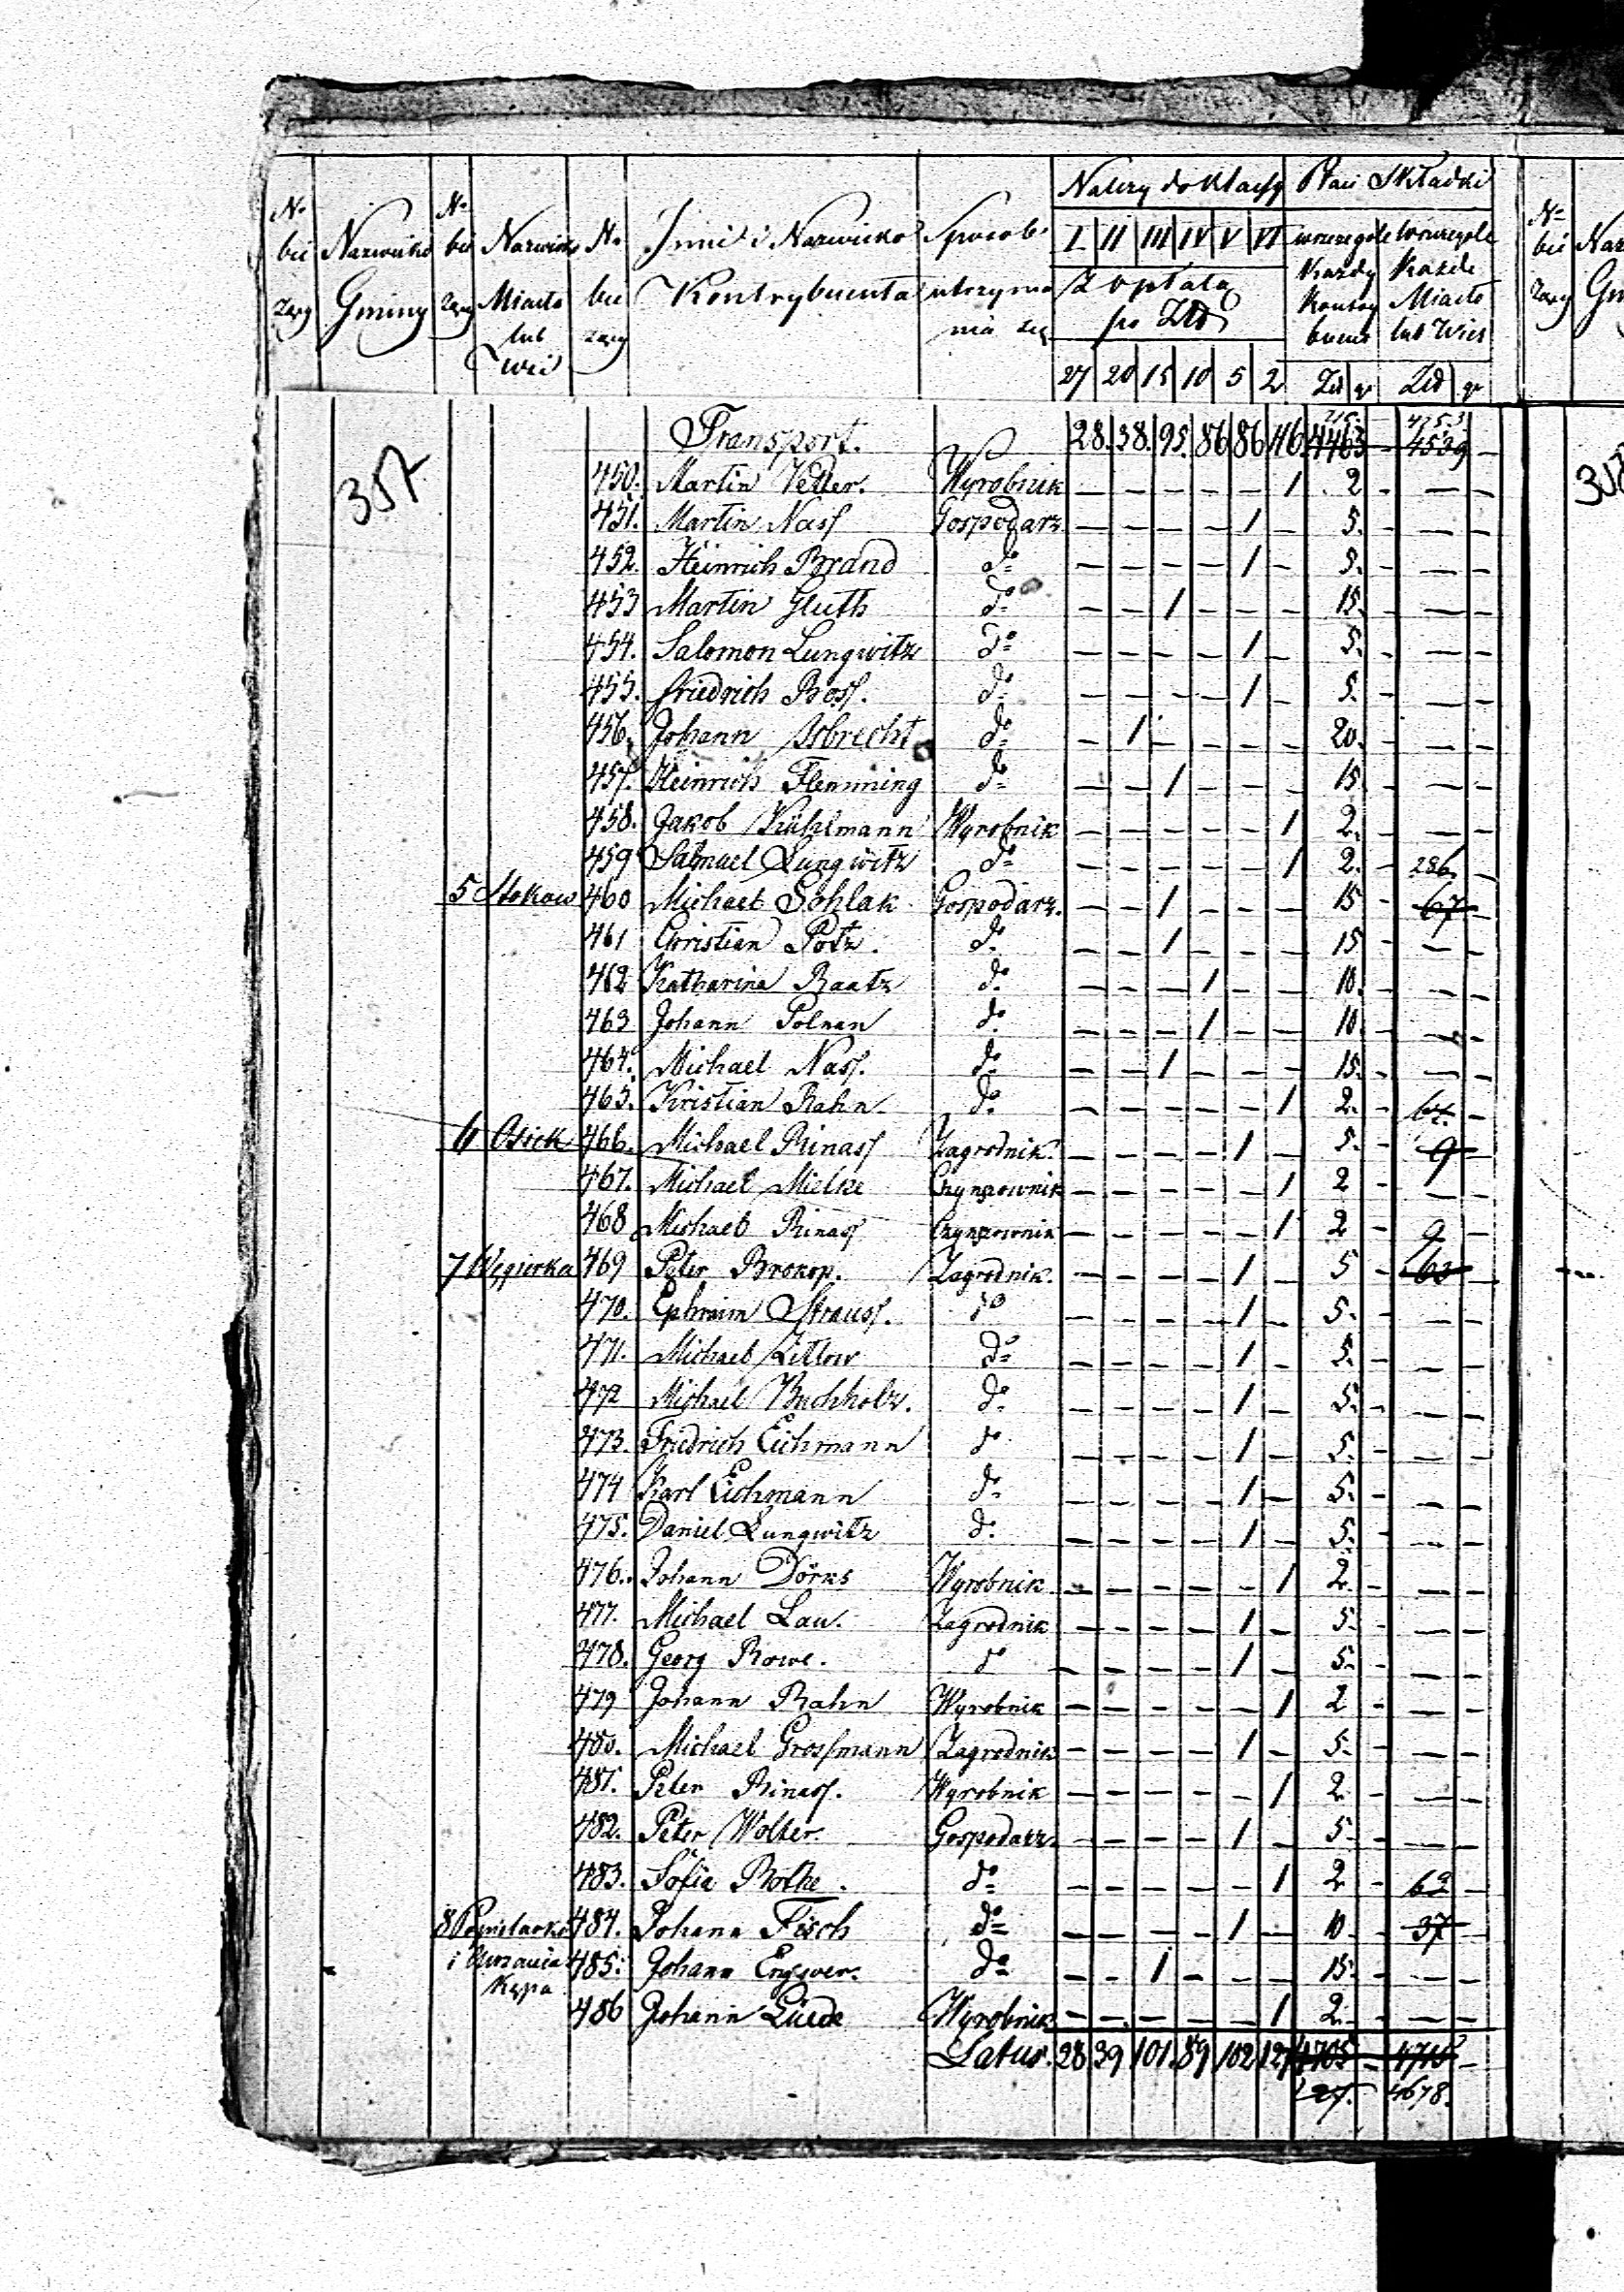 No bie zący | Nazwisko Gminy | No bie zący | Nazwisko Miasta lub Wsi | No bie zący | Imie i Nazwisko Kontrybuenta | Sposob utrzyma nia się | Należy do Klassy | Płaci Składki
I | II | III | IV | V | VI | wszczególe Każdy Kontry buent | wszczególe Każde Miasto lub Wieś
Z opłatą po Złp
27 | 20 | 15 | 10 | 5 | 2 | Złp | gr | Złp | gr
307
Transport. 28. 38. 95. 86 86 116. 4463 - 4539 -
450. Martin Vetter. Wyrobnik - - - - - 1 2 - - -
451. Martin Nass Gospodarz - - - - 1 - 5. - - -
452. Heinrich Brand do - - - - 1 - 5. - - -
453 Martin Gluth do - - 1 - - - 15. - - -
454. Salomon Lungwitz do - - - - 1 - 5. - - -
455. Friedrich Boss. do - - - - 1 - 5. - - -
456. Johann Asbrecht do - 1 - - - - 20. - - -
457. Heinrich Flemming do - - 1 - - - 15. - - -
458. Jakob Kühlmann Wyrobnik - - - - - 1 2. - - -
459 Samuel Lungwitz do - - - - - 1 2. - 286. -
5 Stokow 460 Michael Schlak Gospodarz. - - 1 - - - 15 - 67 -
461 Christian Potz. do - - 1 - - - 15 - - -
462 Katharina Raatz do - - - 1 - - 10. - - -
463 Johann Polnan do - - - 1 - - 10. - - -
464. Michael Nass. do - - 1 - - - 15. - - -
465. Kristian Rahn do - - - - - 1 2. - 67. -
6 Osiek 466. Michael Rinass Zagrodnik. - - - - 1 - 5. - 9 -
467. Michael Mielke Czynszownik - - - - - 1 2 - - -
468 Michael Rinass Czynszownik - - - - - 1 2 - 9 -
7 Węgierka 469 Peter Prokop. Zagrodnik. - - - - 1 - 5 - 63 -
470. Ephraim Strauss. do - - - - 1 - 5. - - -
471. Michael Zittlow do - - - - 1 - 5. - - -
472 Michael Buchholz. do - - - - 1 - 5. - - -
473. Friedrich Eichmann do - - - - 1 - 5. - - -
474 Karl Eichmann do - - - - 1 - 5. - - -
475. Daniel Lungwitz do - - - - 1 - 5. - - -
476. Johann Dörks Wyrobnik - - - - - 1 2. - - -
477. Michael Lau. Zagrodnik - - - - 1 - 5. - - -
478. Georg Rowe. do - - - - 1 - 5. - - -
479 Johann Rahn Wyrobnik - - - - - 1 2 - - -
480. Michael Grossmann Zagrodnik - - - - 1 - 5. - - -
481. Peter Rinass. Wyrobnik - - - - - 1 2. - - -
482. Peter Wolter. Gospodarz. - - - - 1 - 5. - - -
483. Sofia Rothe. do - - - - - 1 2 - 62 -
8 484. Johann Fisch do - - - - 1 - 10 - 37 -
i Kępa 485. Johann do - - 1 - - - 15. - - -
486 Johann Luede Wyrobnik - - - - - 1 2. - - -
Latus. 28 39 101. 89 102 127 4705 - 4715 -
27. 4678.